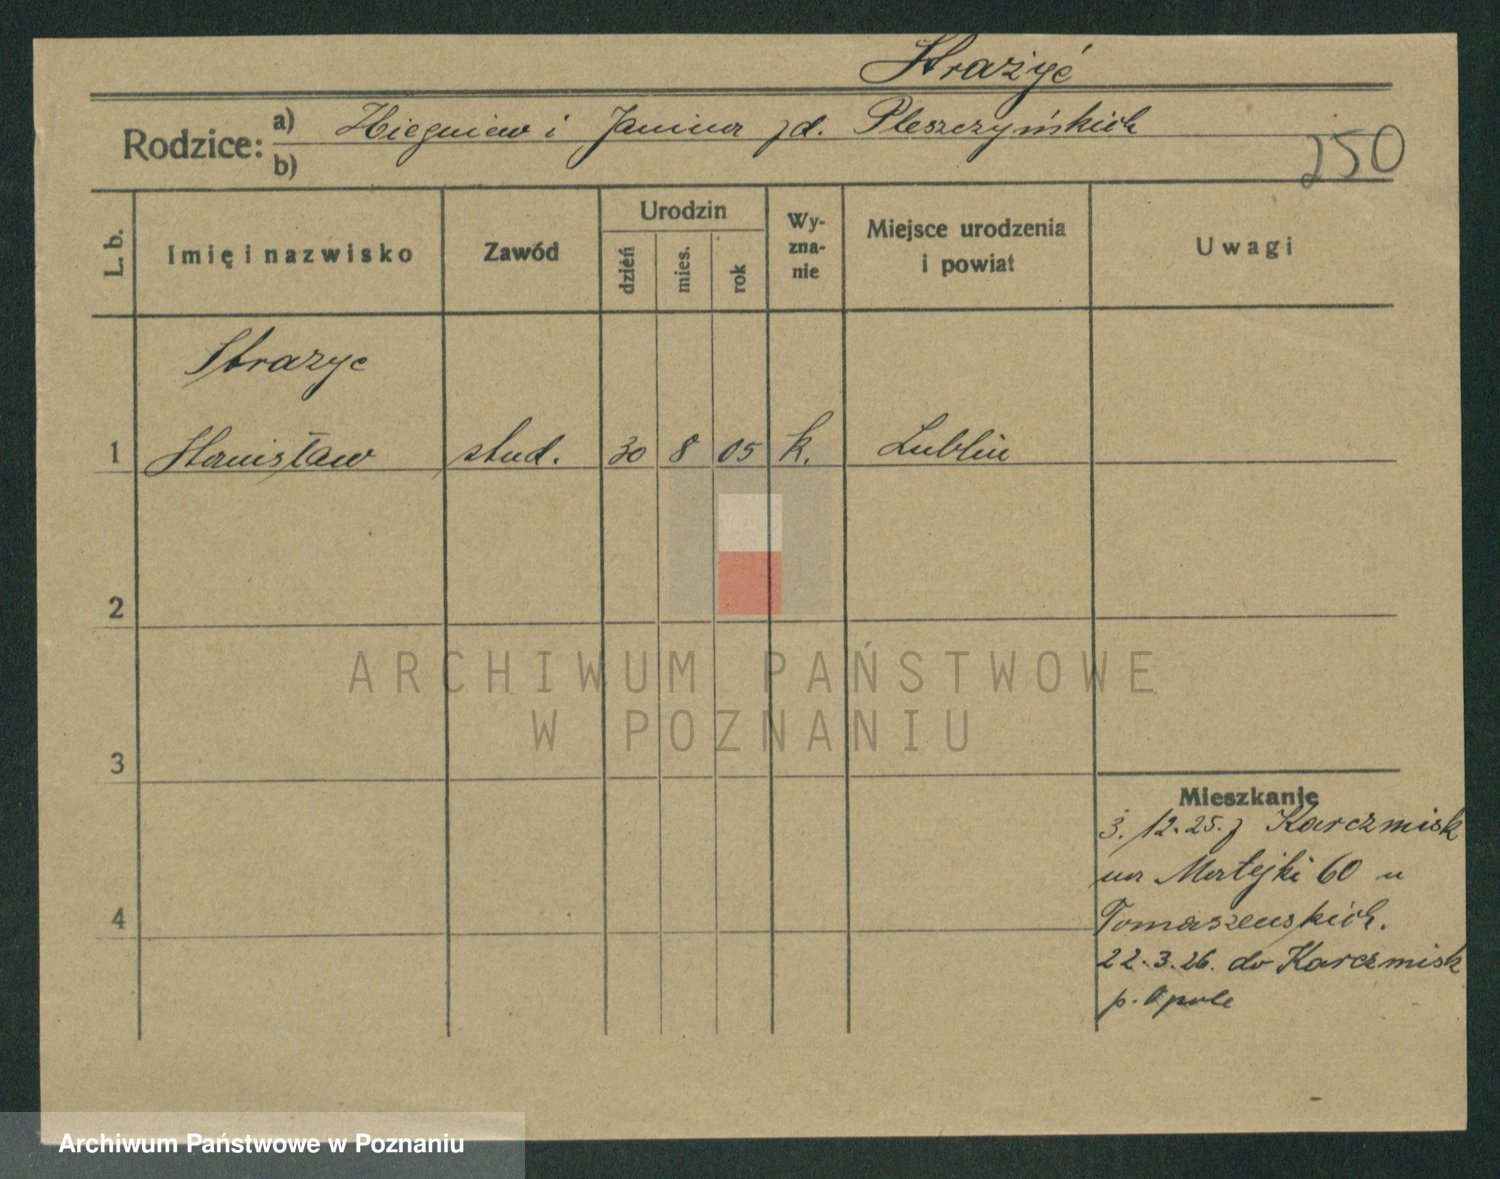 Strażyć
Rodzice: a) Zbigniew i Janina z d. Pleszczyńskich
b)
250
L. b.
Imię i nazwisko
Zawód
Urodzin
dzień
mies.
rok
Wy-
zna-
nie
Miejsce urodzenia
i powiat
Uwagi
Strazyc
1 Stanisław stud. 30 8 05 k. Lublin
2
3
4
Mieszkanie
3. 12. 25. z Karczmisk
na Matejki 60 u
Tomaszewskich.
22. 3. 26. do Karczmisk
p. Opole
ARCHIWUM PAŃSTWOWE
W POZNANIU
Archiwum Państwowe w Poznaniu